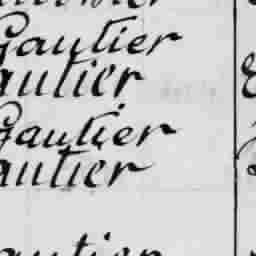 Gautier
autier
Gautier
autier
autier